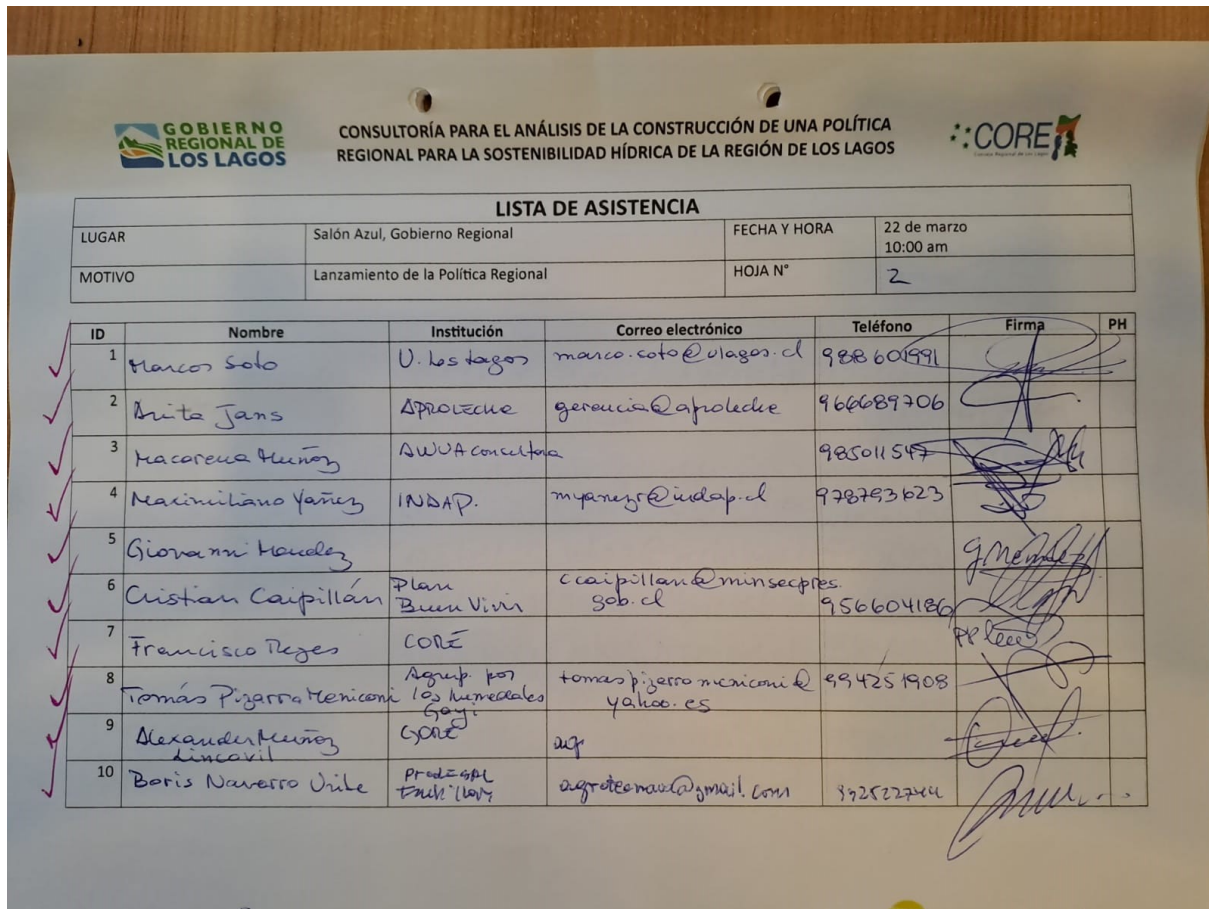 GOBIERNO
REGIONAL DE
LOS LAGOS
CONSULTORÍA PARA EL ANÁLISIS DE LA CONSTRUCCIÓN DE UNA POLÍTICA
REGIONAL PARA LA SOSTENIBILIDAD HÍDRICA DE LA REGIÓN DE LOS LAGOS
CORE
LISTA DE ASISTENCIA
LUGAR Salón Azul, Gobierno Regional FECHA Y HORA 22 de marzo
10:00 am
MOTIVO Lanzamiento de la Política Regional HOJA N° 2
ID Nombre Institución Correo electrónico Teléfono Firma PH
1 Marcos Soto U. Los Lagos marco.soto@ulagos.cl 988601991
2 Anita Jans APROLECHE gerencia@aproleche 966689706
3 Macarena Muñoz AWUA consultora 985011547
4 Maximiliano Yañez INDAP. myanezr@indap.cl 978793623
5 Giovanni Mendez
6 Cristian Caipillán Plan ccaipillan@minsecpres.
Buen Vivir gob.cl 956604186
7 Francisco Reyes CORE
8 Agrup. por
Tomás Pizarro Meniconi los humedales tomaspizarromeniconi@ 994251908
yahoo.es
9 Alexander Muñoz GORE
Lincovil
10 Boris Navarro Uribe @gmail.com